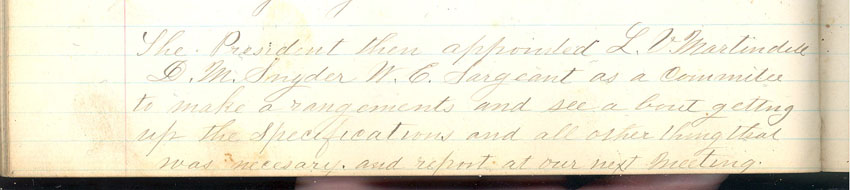 The President then appointed L. V. Martindell
D. M. Snyder W. E. Sargeant as a Commitee
to make a rangements and see a bout gettng
up the Specifications and all other thing that
was necesary. and report at our next Meeting.